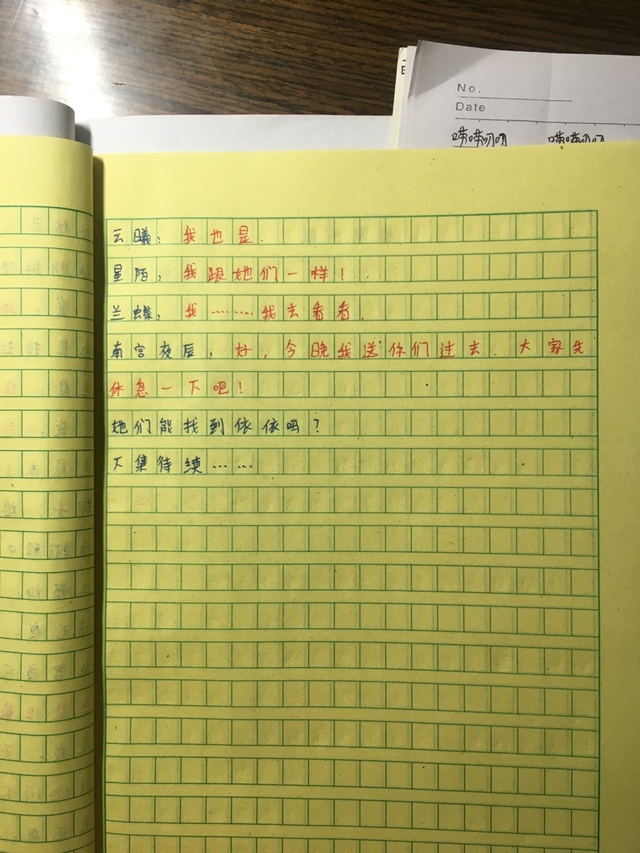 No.
Date
云曦：我也是.
星陌：我跟她们一样！.
兰蝶：我……我去看看.
南宫夜辰：好，今晚我送你们过去.大家先
休息一下吧！
她们能找到依依吗？
下集待续……